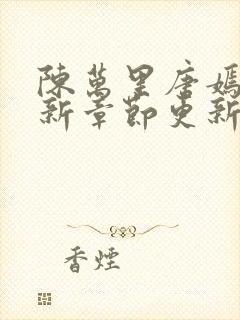 陳萬里唐嫣
新章節更新
香煙